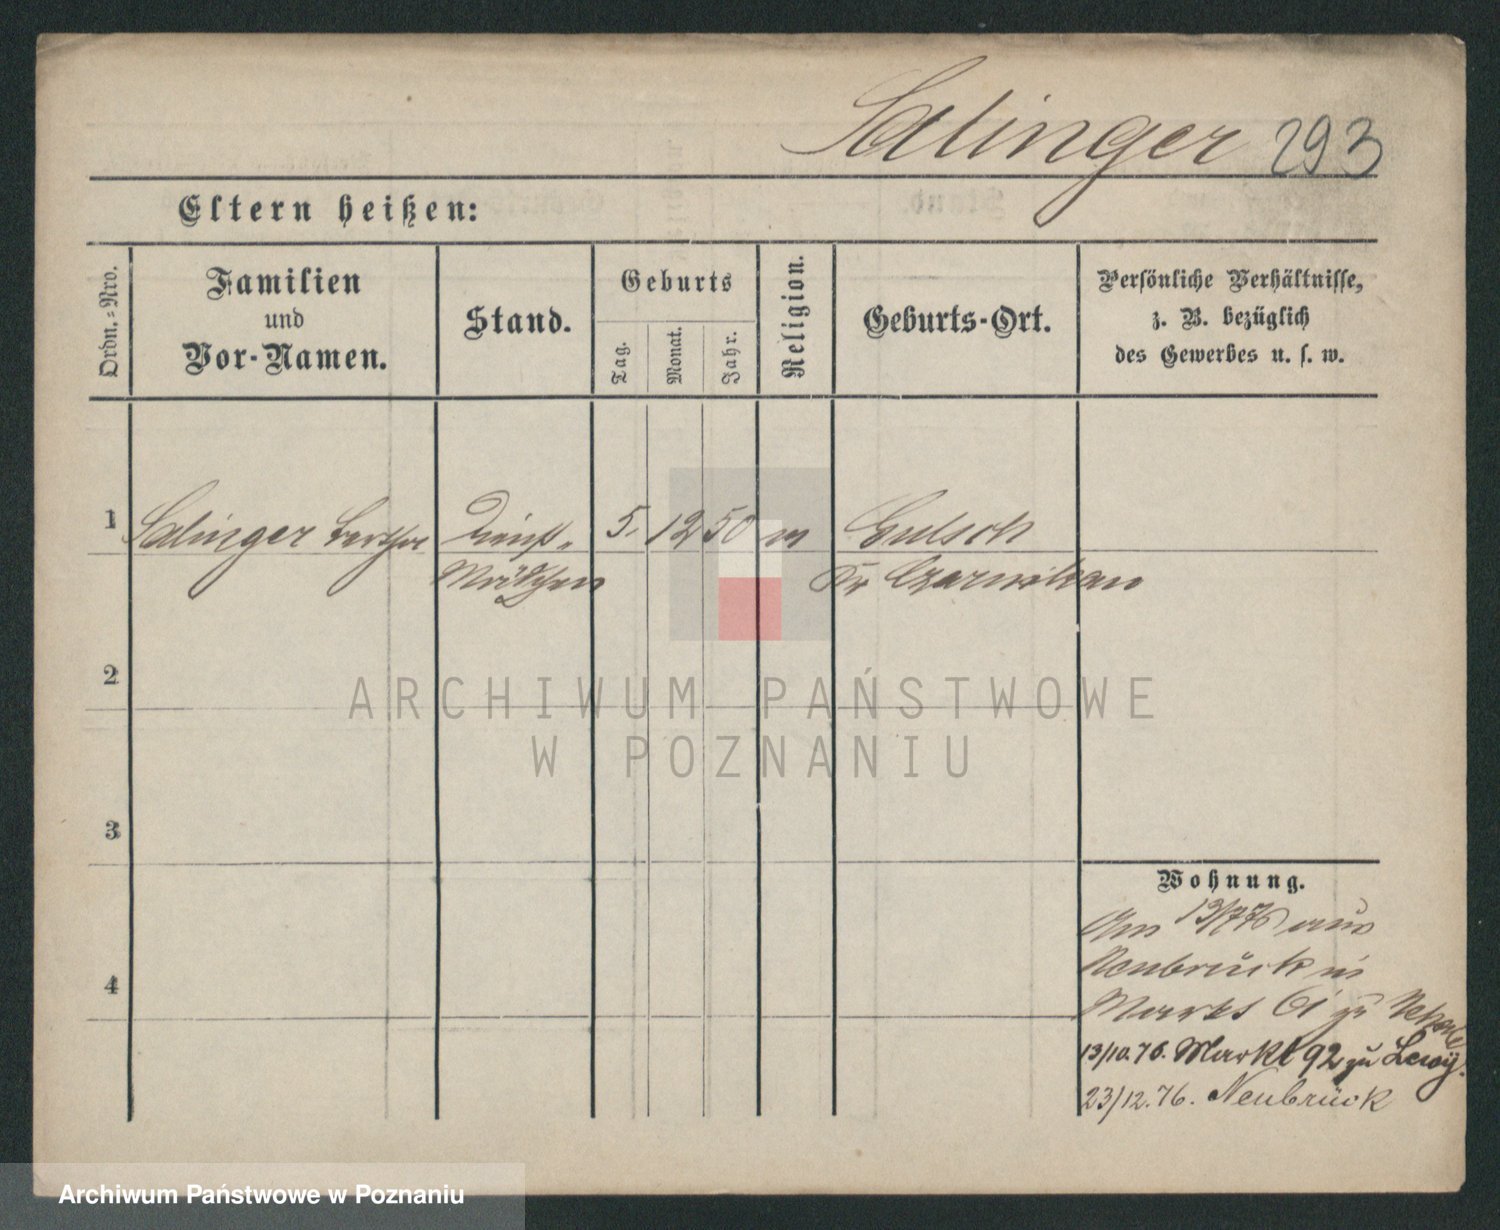 Salinger 293
Eltern heißen:
Ordn.-Nro.
Familien
und
Vor-Namen.
Stand.
Geburts
Tag.
Monat.
Jahr.
Religion.
Geburts-Ort.
Persönliche Verhältnisse,
z. B. bezüglich
des Gewerbes u. s. w.
1 Salinger Bertha Dienst- 5. 12 50 m Gulsch
Mädchen Kr Czarnikau
2
ARCHIWUM PAŃSTWOWE
W POZNANIU
3
4
Wohnung.
Am 13/7 76 aus
Neubrück in
Markt 61 zu
13/10.76. Markt 92 zu Lewy.
23/12.76. Neubrück
Archiwum Państwowe w Poznaniu